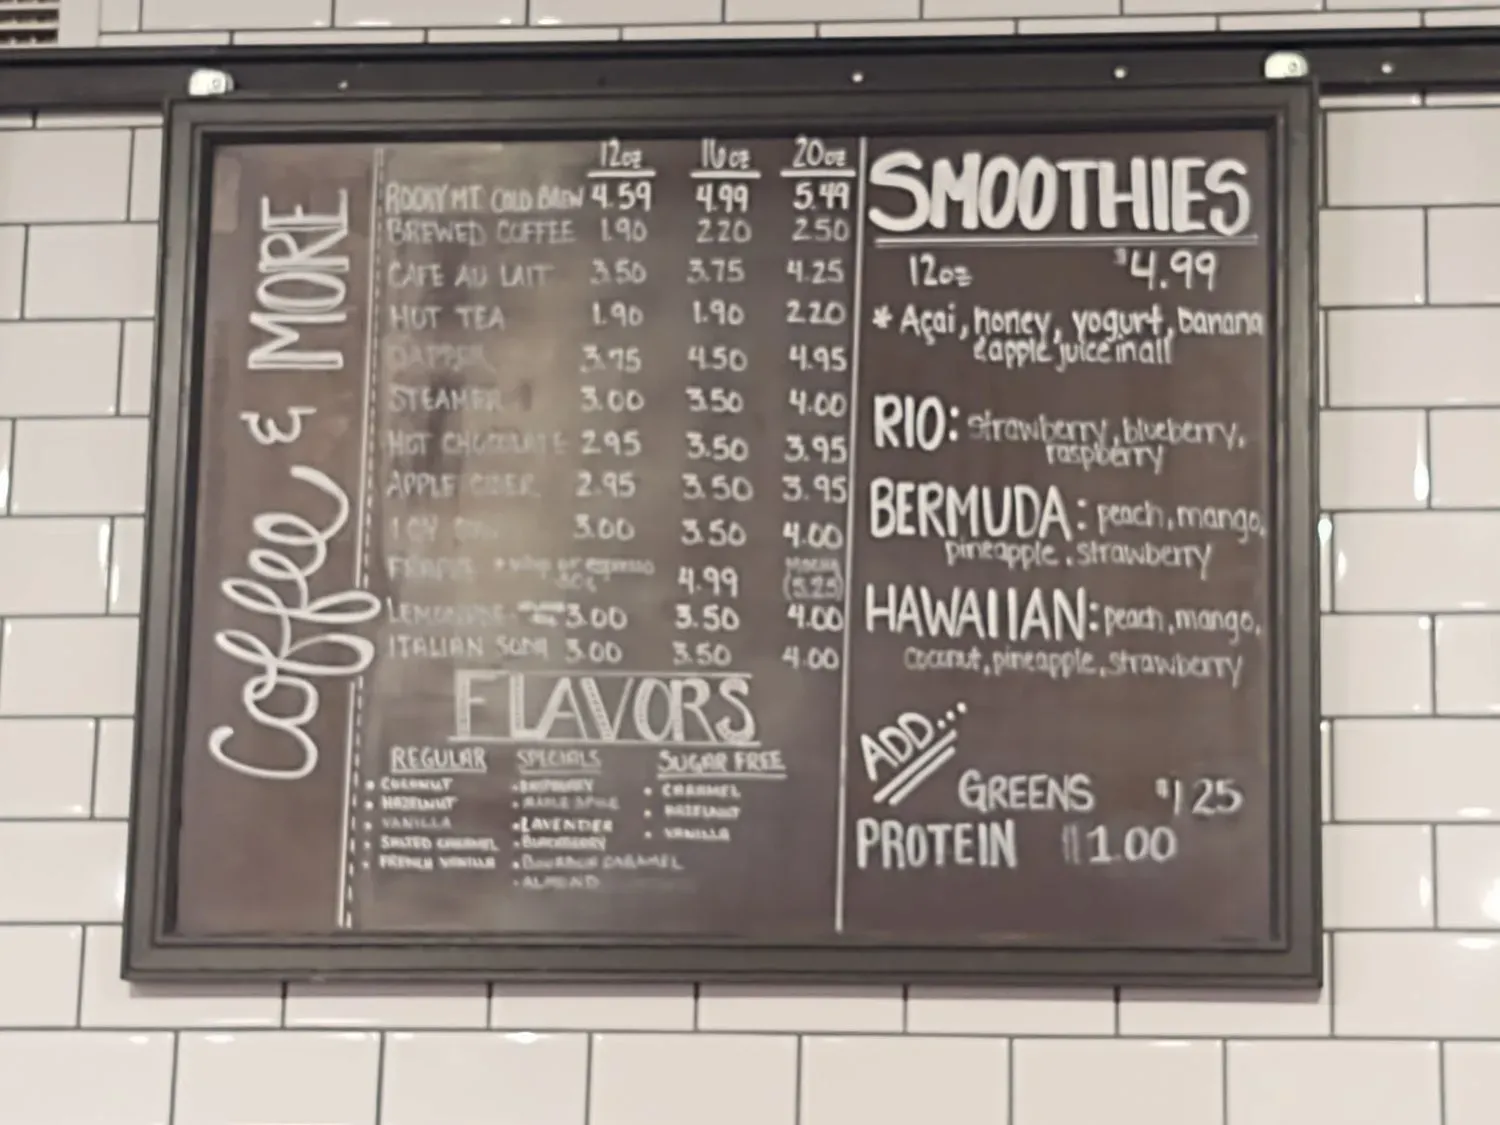 Coffee & MORE
12oz 16oz 20oz
ROCKY MT. COLD BREW 4.59 4.99 5.49
BREWED COFFEE 1.90 2.20 2.50
CAFE AU LAIT 3.50 3.75 4.25
HOT TEA 1.90 1.90 2.20
3.75 4.50 4.95
STEAMER 3.00 3.50 4.00
HOT CHOCOLATE 2.95 3.50 3.95
APPLE CIDER 2.95 3.50 3.95
3.00 3.50 4.00
FRAPPE espresso 4.99 MOCHA
(5.25)
LEMONADE 3.00 3.50 4.00
ITALIAN SODA 3.00 3.50 4.00
FLAVORS
REGULAR
• COCONUT
• HAZELNUT
• VANILLA
• SALTED CARAMEL
• FRENCH VANILLA
SPECIALS
• RASPBERRY
• MAPLE SPICE
• LAVENDER
• BLACKBERRY
• BOURBON CARAMEL
• ALMOND
SUGAR FREE
• CARAMEL
• HAZELNUT
• VANILLA
SMOOTHIES
12oz $4.99
* Açai, honey, yogurt, banana
& apple juice in all
RIO: strawberry, blueberry,
raspberry
BERMUDA: peach, mango,
pineapple, strawberry
HAWAIIAN: peach, mango,
coconut, pineapple, strawberry
ADD...
GREENS $1.25
PROTEIN $1.00